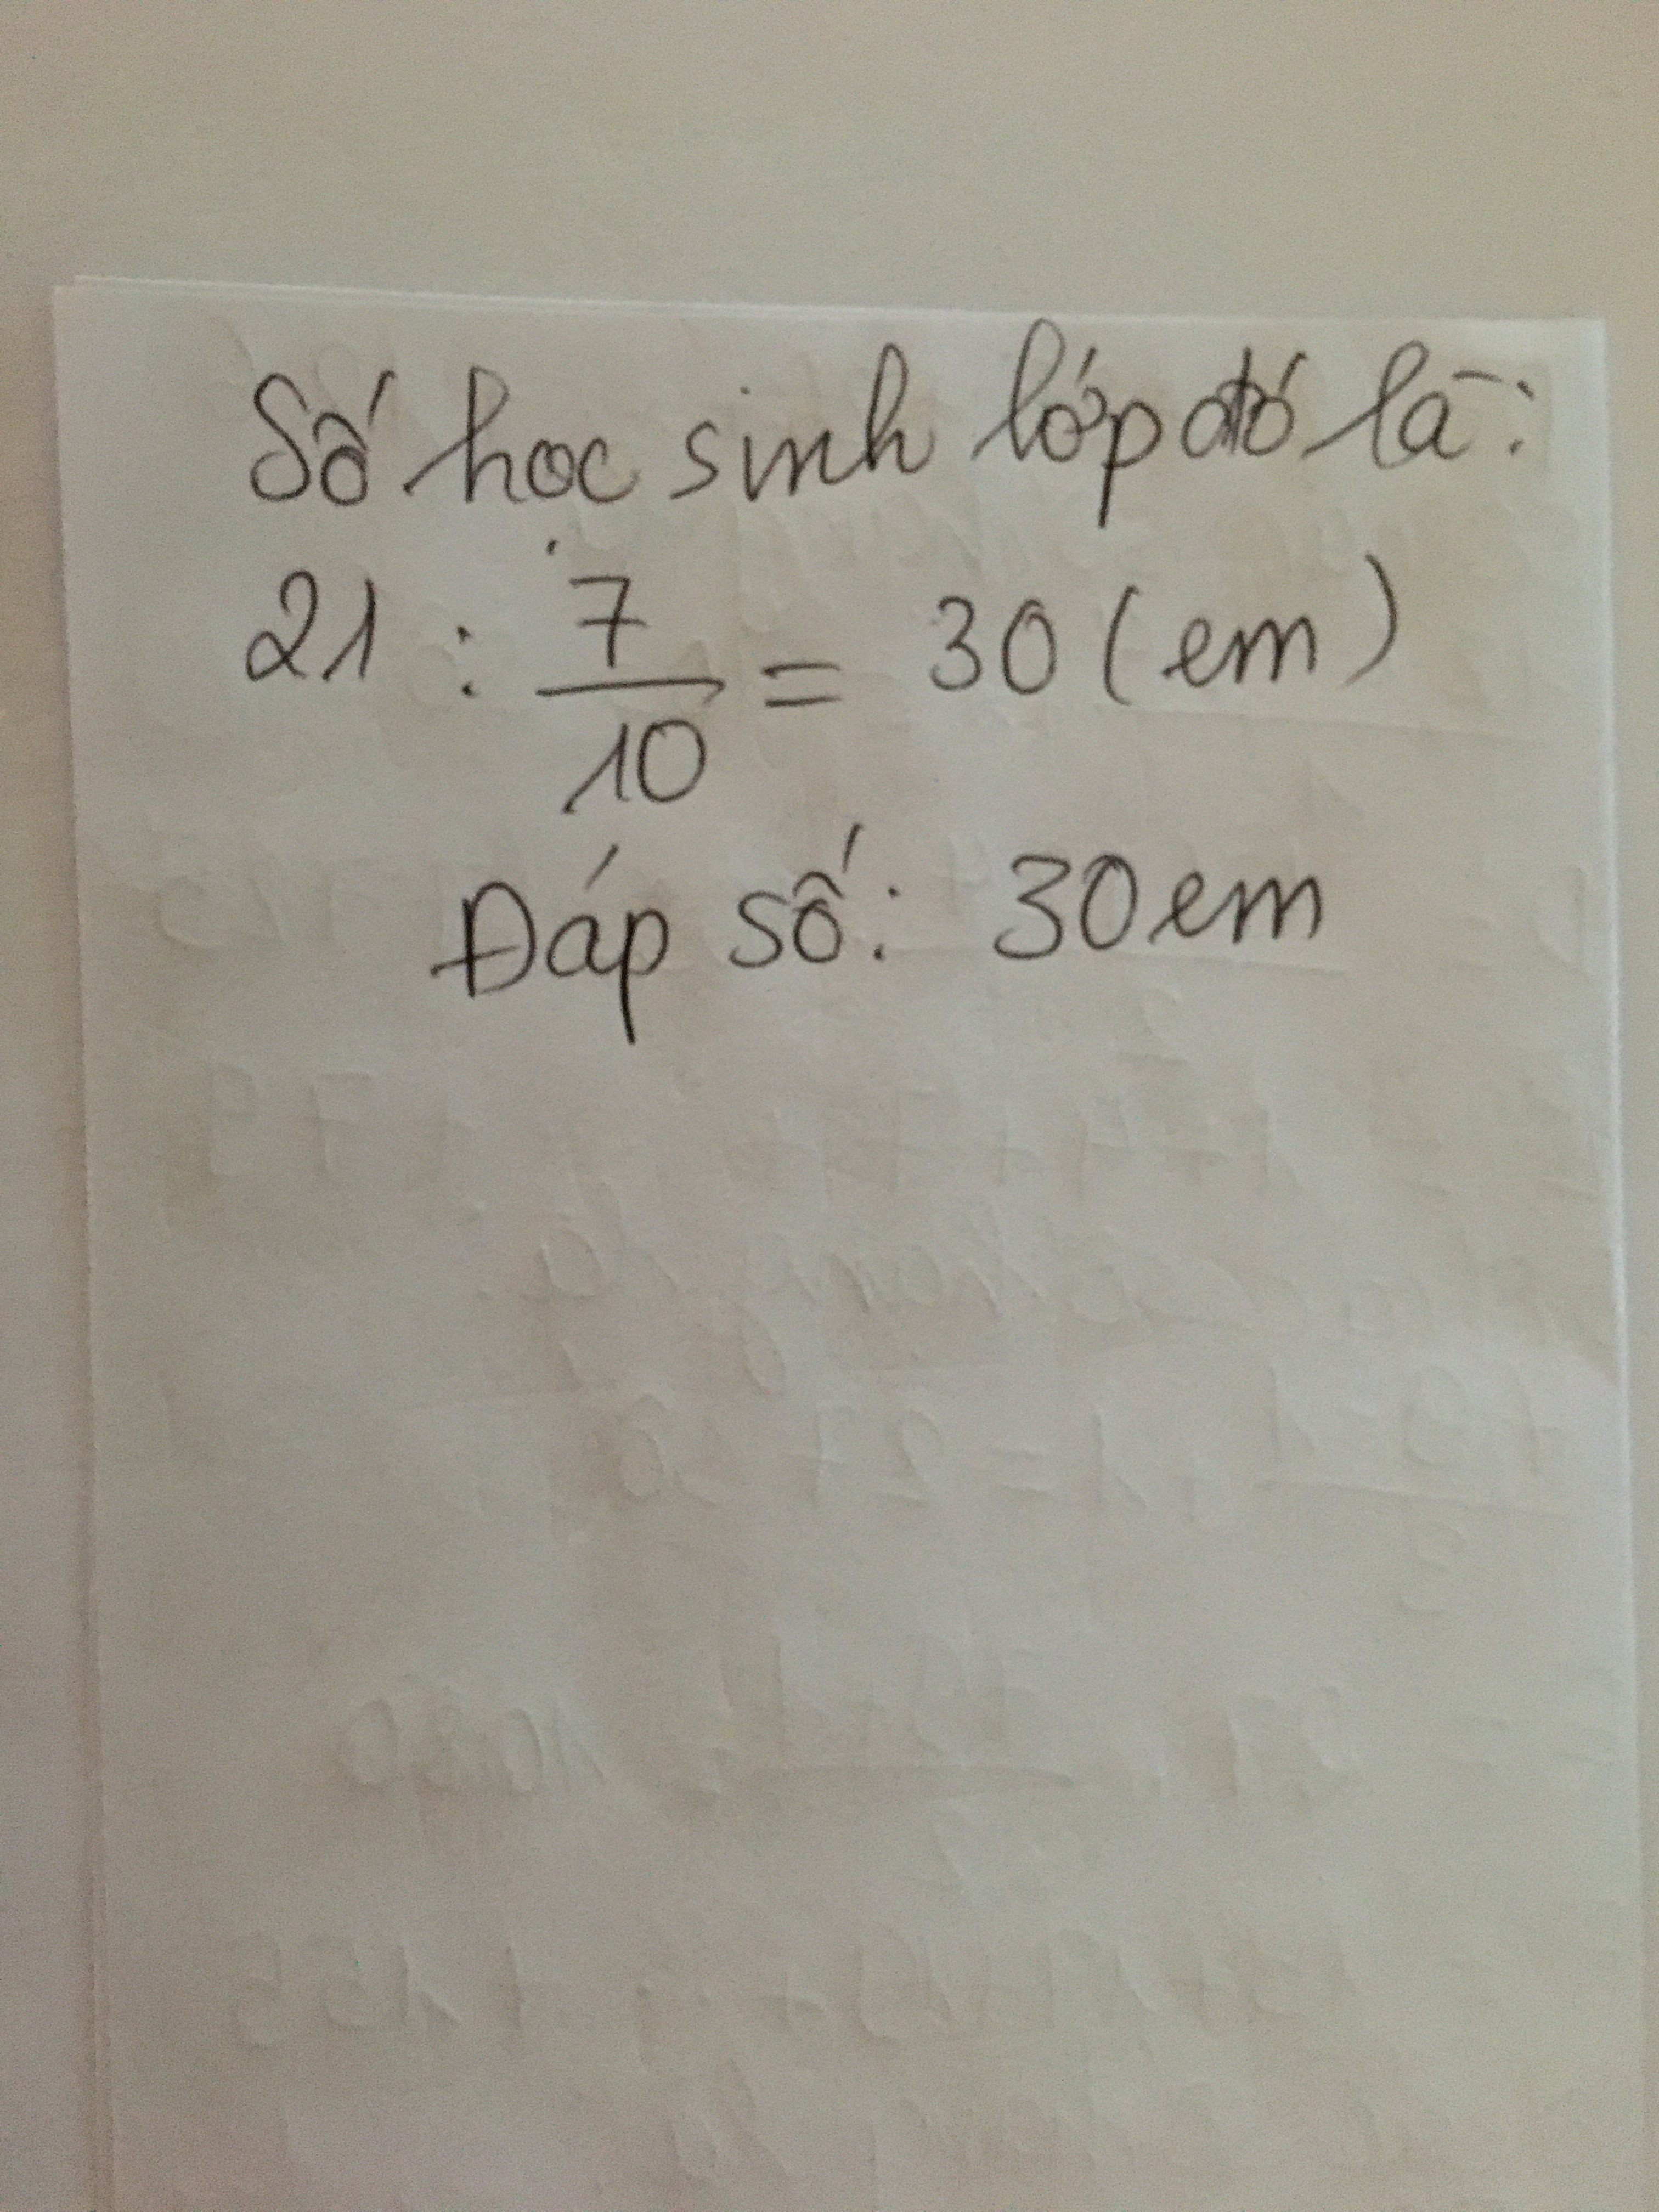 Số học sinh lớp đó là:
21 : 7/10 = 30 (em)
Đáp số: 30 em